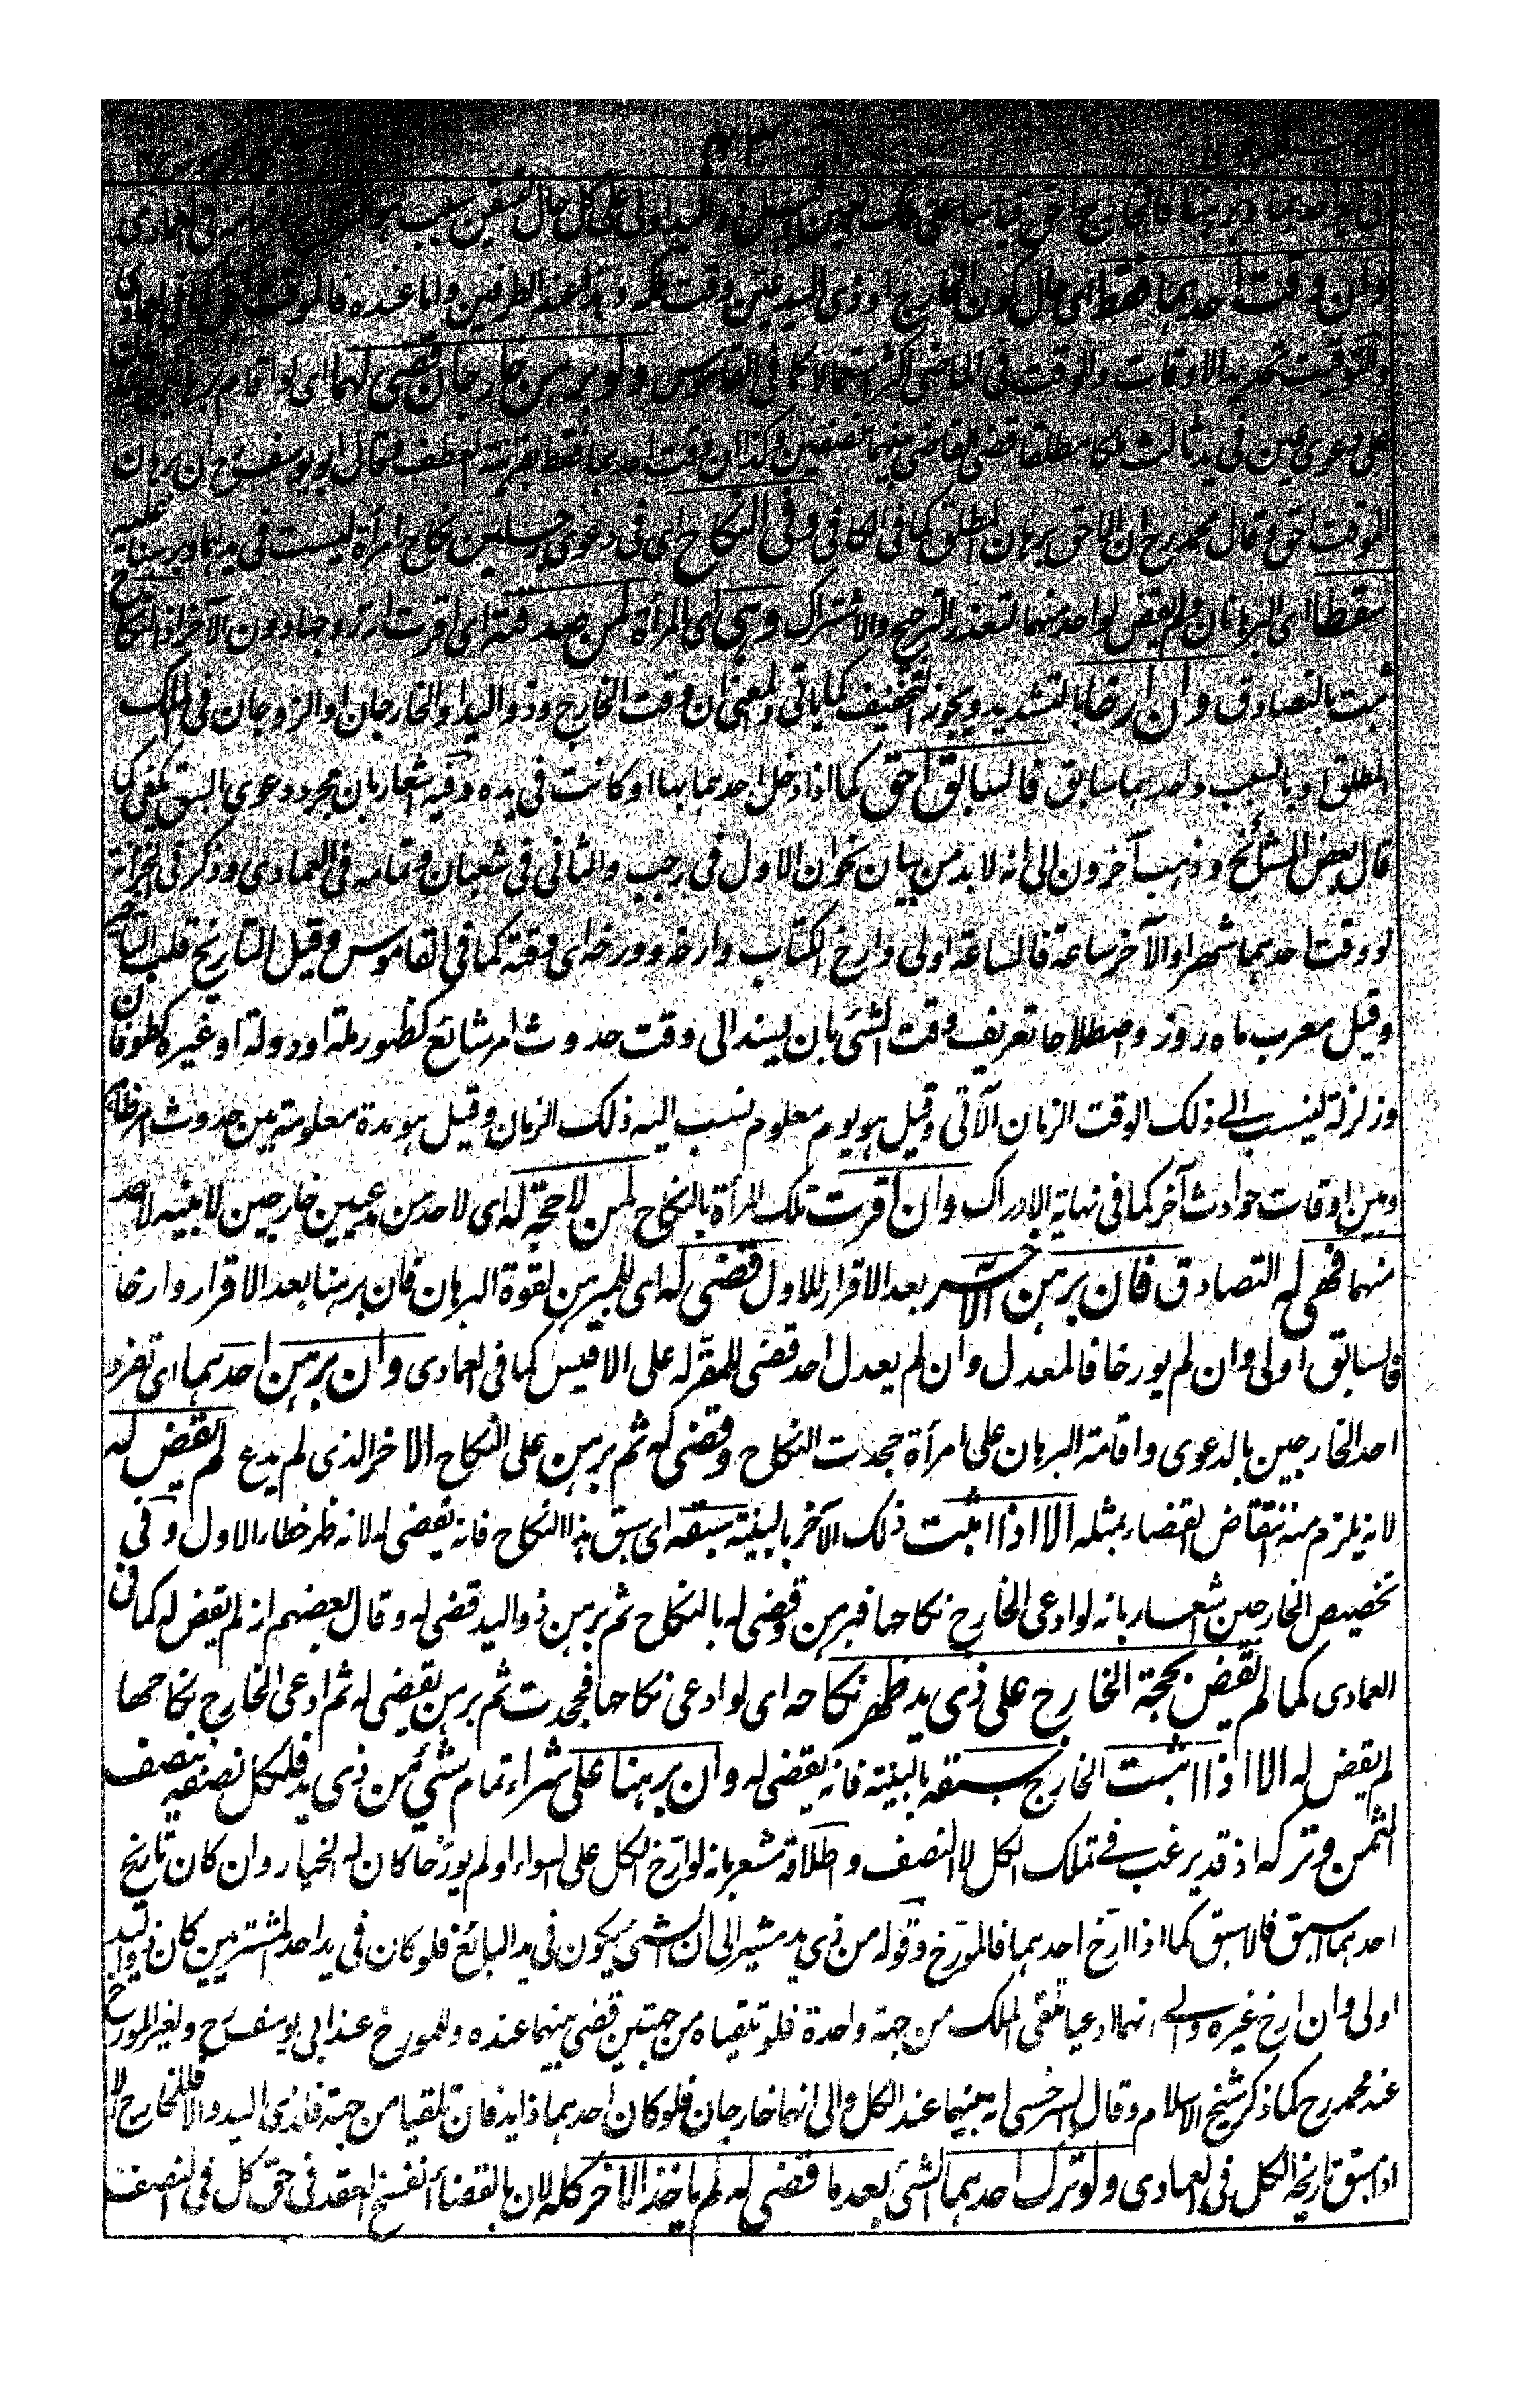 وان وقت احدهما فقط اى حال كون الخارج او ذى اليد عين وقت ملكه وهذا عند الطرفين واما عنده فالموقت احق كما فى العمادى
والتوقيت تحديد الاوقات والوقت فى الماضى اكثر استعمالا كما فى القاموس ولو برهن خارجان قضى لهما اى لو اقام برهانا
على دعوى عين فى يد ثالث ملكا مطلقا قضى القاضى بينهما نصفين وكذا ان وقت احدهما فقط بقرينة العطف وقال ابو يوسف رح ان برهان
الموقت احق وقال محمد رح ان الاحق برهان المطلق كما فى الكافى وفى النكاح اى فى دعوى رجلين نكاح امرأة ليست فى يدهما وبرهنا عليه
سقطا اى البرهانان ولم يقض لواحد منهما لتعذر الترجيح والاشتراك وهى اى المرأة لمن صدقته اى اقرت انه زوجها دون الآخر اذ النكاح
ثبت بالتصادق وان ارخا بالتشديد ويجوز التخفيف كما ياتى والمعنى ان وقت الخارج وذو اليد او الخارجان او الزوجان فى الملك
المطلق او بالسبب واحدهما سابق فالسابق احق كما اذا دخل احدهما بها او كانت فى يده وفيه اشعار بان مجرد دعوى السبق يكفى كما
قال بعض المشائخ وذهب آخرون الى انه لا بد من بيان نحو ان الاول فى رجب والثانى فى شعبان وتمامه فى العمادى وذكر فى الخزانة
لو وقت احدهما شهرا والآخر ساعة فالساعة اولى وارخ الكتاب وارخه وورخه اى وقته كما فى القاموس وقيل التاريخ قلب التأخير
وقيل معرب ماه روز واصطلاحا تعريف وقت الشئ بان يسند الى وقت حدوث امر شائع كظهور ملة او دولة او غيره كطوفان
وزلزلة لينسب الى ذلك الوقت الزمان الآتى وقيل هو يوم معلوم نسب اليه ذلك الزمان وقيل هو مدة معلومة بين حدوث امر ظاهر
وبين اوقات حوادث آخر كما فى نهاية الادراك وان اقرت تلك المرأة بالنكاح لمن لا حجة له اى لاحد من مدعيين خارجين لا بينة لاحد
منهما فهى له التصادق فان برهن الآخر بعد الاقرار للاول قضى له اى للمبرهن لقوة البرهان فان برهنا بعد الاقرار وارخا
فالسابق اولى وان لم يورخا فالمعدل وان لم يعدل احد قضى للمقر له على الاقيس كما فى العمادى وان برهن احدهما اى تفرد
احد الخارجين بالدعوى واقامة البرهان على امرأة جحدت النكاح وقضى له ثم برهن على النكاح الآخر الذى لم يدع لم يقض له
لانه يلزم منه انتقاض القضاء بمثله الا اذا اثبت ذلك الآخر بالبينة سبقه اى سبق هذا النكاح فانه يقضى له لانه ظهر خطاء الاول وفى
تخصيص الخارجين اشعار بانه لو ادعى الخارج نكاحها فبرهن وقضى له بالنكاح ثم برهن ذو اليد قضى له وقال بعضهم انه لم يقض له كما فى
العمادى كما لم يقض بحجة الخارج على ذى يد ظهر نكاحه اى لو ادعى نكاحها فجحدت ثم برهن يقضى له ثم ادعى الخارج نكاحها
لم يقض له الا اذا اثبت الخارج سبقه بالبينة فانه يقضى له وان برهنا على شراء تمام شئ من ذى يد فلكل نصفه بنصف
الثمن وتركه اذ قد يرغب فى تملك الكل لا النصف واطلاقه مشعر بانه لو ارخ الكل على السواء او لم يورخا كان له الخيار وان كان تاريخ
احدهما اسبق فالاسبق كما اذا ارخ احدهما فالمورخ وقوله من ذى يد مشير الى ان الشئ يكون فى يد البائع فلو كان فى يد احد المشتريين كان ذو اليد
اولى وان ارخ غيره والى انهما ادعيا تلقى الملك من جهة واحدة فلو تلقياه من جهتين قضى بينهما عنده وللمورخ عند ابى يوسف رح ولغير المورخ
عند محمد رح كما ذكر شيخ الاسلام وقال السرخسى انه بينهما عند الكل والى انهما خارجان فلو كان احدهما ذا يد فان تلقيا من جهة فلذى اليد والا فللخارج الا
اذا سبق تاريخه الكل فى العمادى ولو ترك احدهما الشئ بعد ما قضى له لم ياخذ الآخر كله لان بالقضاء انفسخ العقد فى حق كل فى النصف